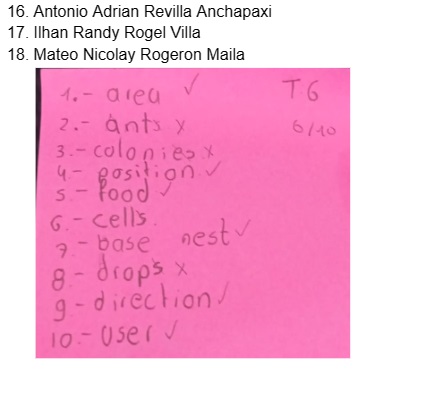 16. Antonio Adrian Revilla Anchapaxi
17. Ilhan Randy Rogel Villa
18. Mateo Nicolay Rogeron Maila
1.- area ✓ T6
2.- ants x 6/10
3.- colonies x
4- position ✓
5 - food ✓
6.- cells
7 - base nest ✓
8 - drops x
9 - direction ✓
10.- user ✓